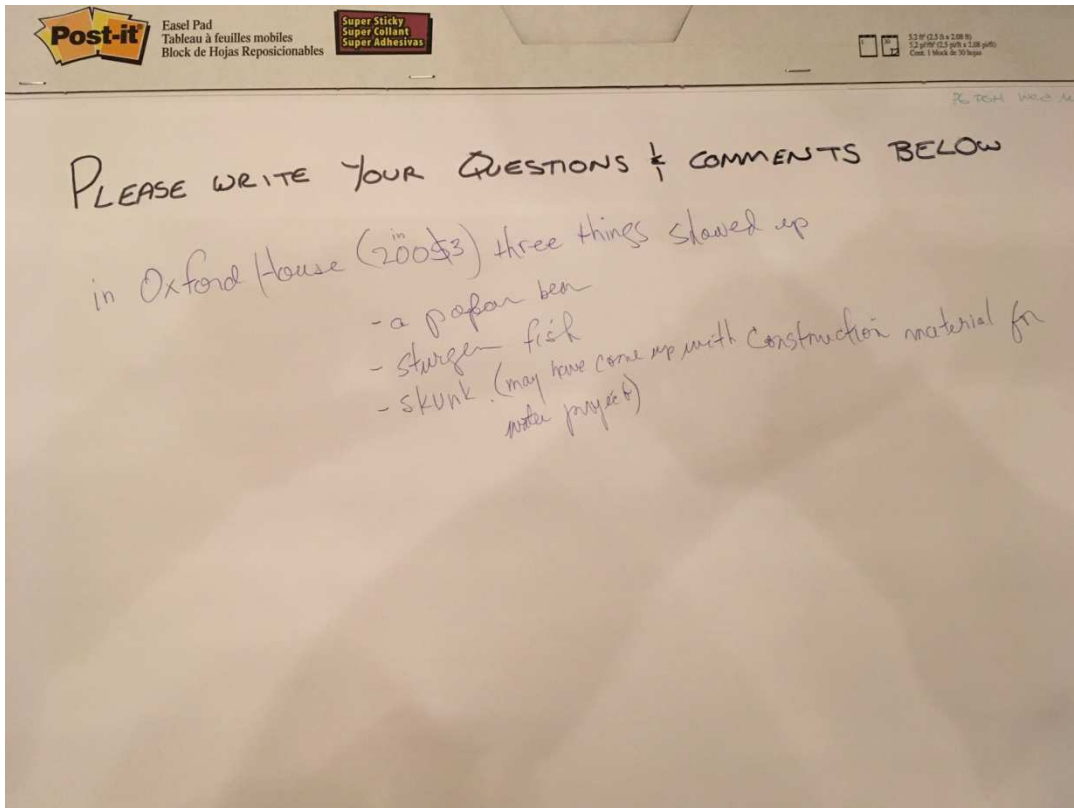 Post-it
Easel Pad
Tableau à feuilles mobiles
Block de Hojas Reposicionables
Super Sticky
Super Collant
Super Adhesivas
PLEASE WRITE YOUR QUESTIONS & COMMENTS BELOW
in Oxford House (in 2003) three things showed up
- a polar bear
- sturgen fish
- skunk. (may have come up with construction material for
water project)